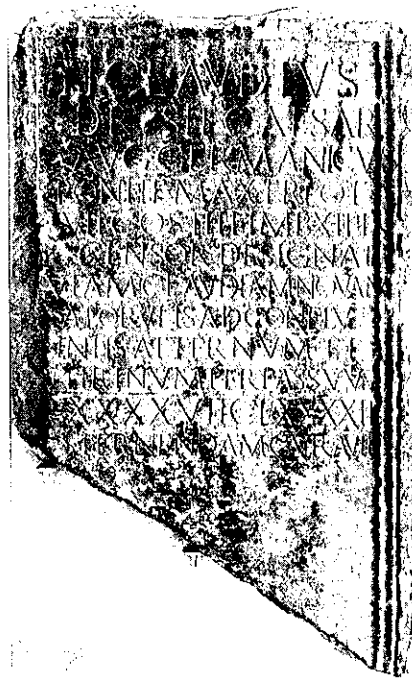 TI CLAVDIVS
DRVSI F CAESAR
AVG GERMANICVS
PONTIF MAX TRIB POT
VII COS IIII IMP XIII
CENSOR DESIGNAT
VIAM CLAVDIAM NOVAM
A FORVLIS AD CONFLVE
ENTIS ATTERNVM ET
TIRINVM PER PASSVVM
XXXXVII CLXXXXII
STERNENDAM CVRAVIT